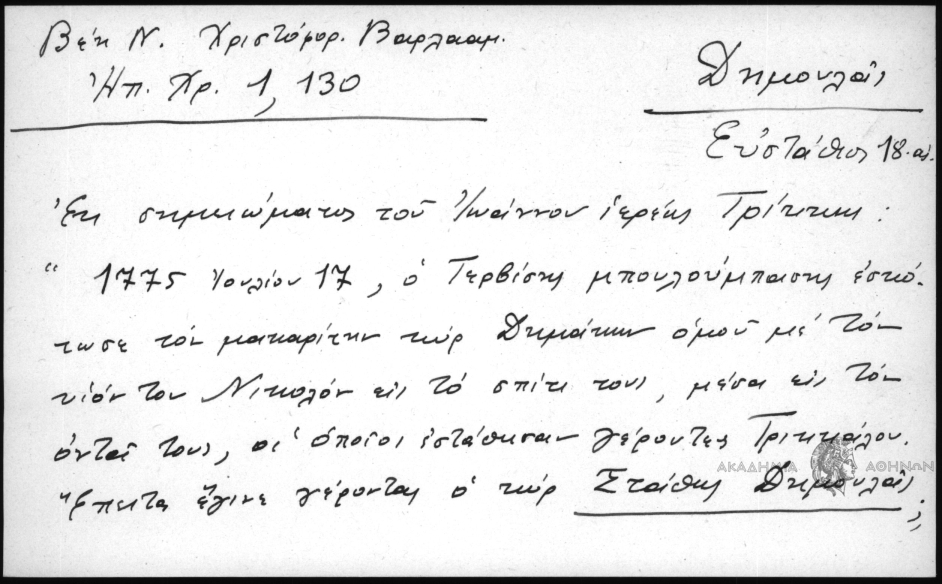 Βέη Ν. Χριστόφορ. Βαρλααμ.
Ἠπ. Χρ. 1, 130
Δημουλᾶς
Εὐστάθιος 18. αἰ.
Ἐκ σημειώματος τοῦ Ἰωάννου ἱερέως Τρίκκης :
“ 1775 Ἰουλίου 17, ὁ Τερβίσης μπουλούμπασης ἐσκό-
τωσε τὸν μακαρίτην κὺρ Δημάκην ὁμοῦ μὲ τὸν
υἱόν του Νικολὸν εἰς τὸ σπίτι τους, μέσα εἰς τὸν
ὀντᾶ τους, οἱ ὁποῖοι ἐστάθησαν γέροντες Τρικκάλου.
Ἔπειτα ἔγινε γέροντας ὁ κὺρ Στάθης Δημουλᾶς ;
ΑΚΑΔΗΜΙΑ ΑΘΗΝΩΝ